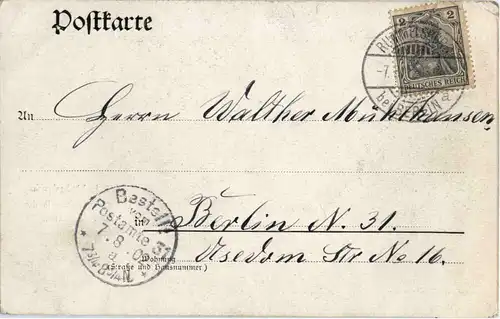 Postkarte
2 2
DEUTSCHES REICH
An Herrn Walther Mühlhausen
bei BERLIN
Bestellt
vom
Postamte 31
7.8.
in Berlin N. 31.
Wohnung Usedom Str No 16.
(Straße und Hausnummer)